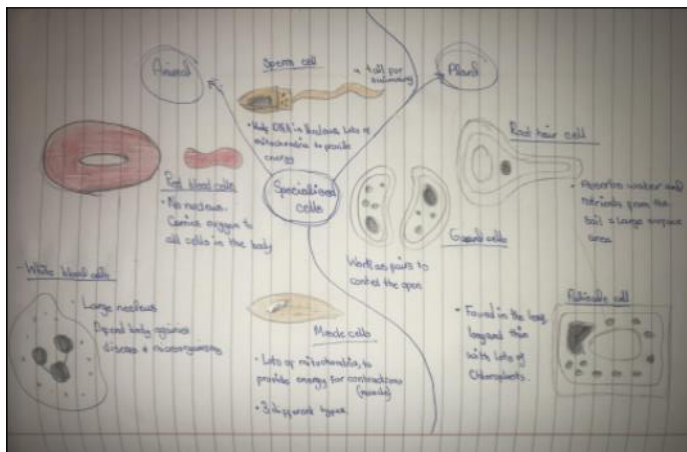 Animal
Sperm cell
→ tail for
swimming
Plant
• Half DNA in Nucleus. Lots of
mitochondria to provide
energy
Root hair cell
Red blood cells
• No nucleus.
Carries oxygen to
all cells in the body
Specialised
cells
• Absorbs water and
nutrients from the
soil & large surface
area
Guard cells
Work as pairs to
control the open
- White blood cells
• Large nucleus
Defend body against
disease & microorganisms
Muscle cells
• Lots of mitochondria, to
provide energy for contractions
(muscle)
• 3 different types
Palisade cell
• Found in the leaf,
long and thin
with lots of
Chloroplasts.